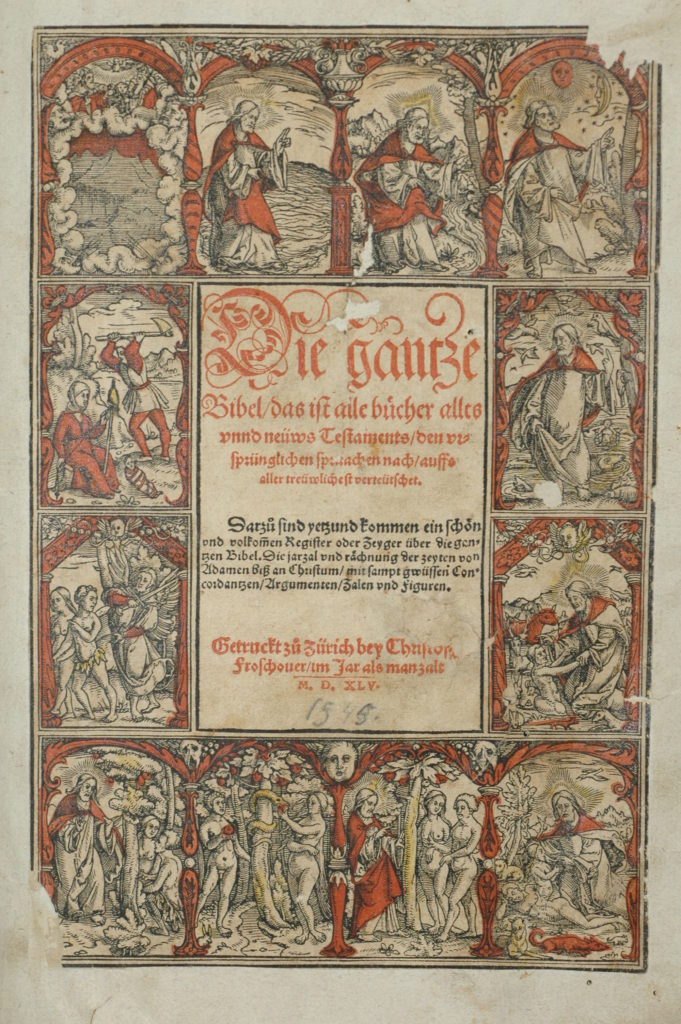 Die gantze
Bibel/das ist alle bücher allts
vnnd neüws Testaments/den vr-
sprünglichen spraachen nach/auffs
aller treüwlichest verteütschet.
Darzů sind yetzund kommen ein schön
vnd volkom̃en Register oder Zeyger über die gen-
tzen Bibel. Die jarzal vnd råchnung der zeyten von
Adamen biß an Christum/ mit sampt gwüssen Con-
cordantzen/Argumenten/Zalen vnd Figuren.
Getruckt zů Zürich bey Christof.
Froschouer/im Jar als man zalt
M. D. XLV.
1545.